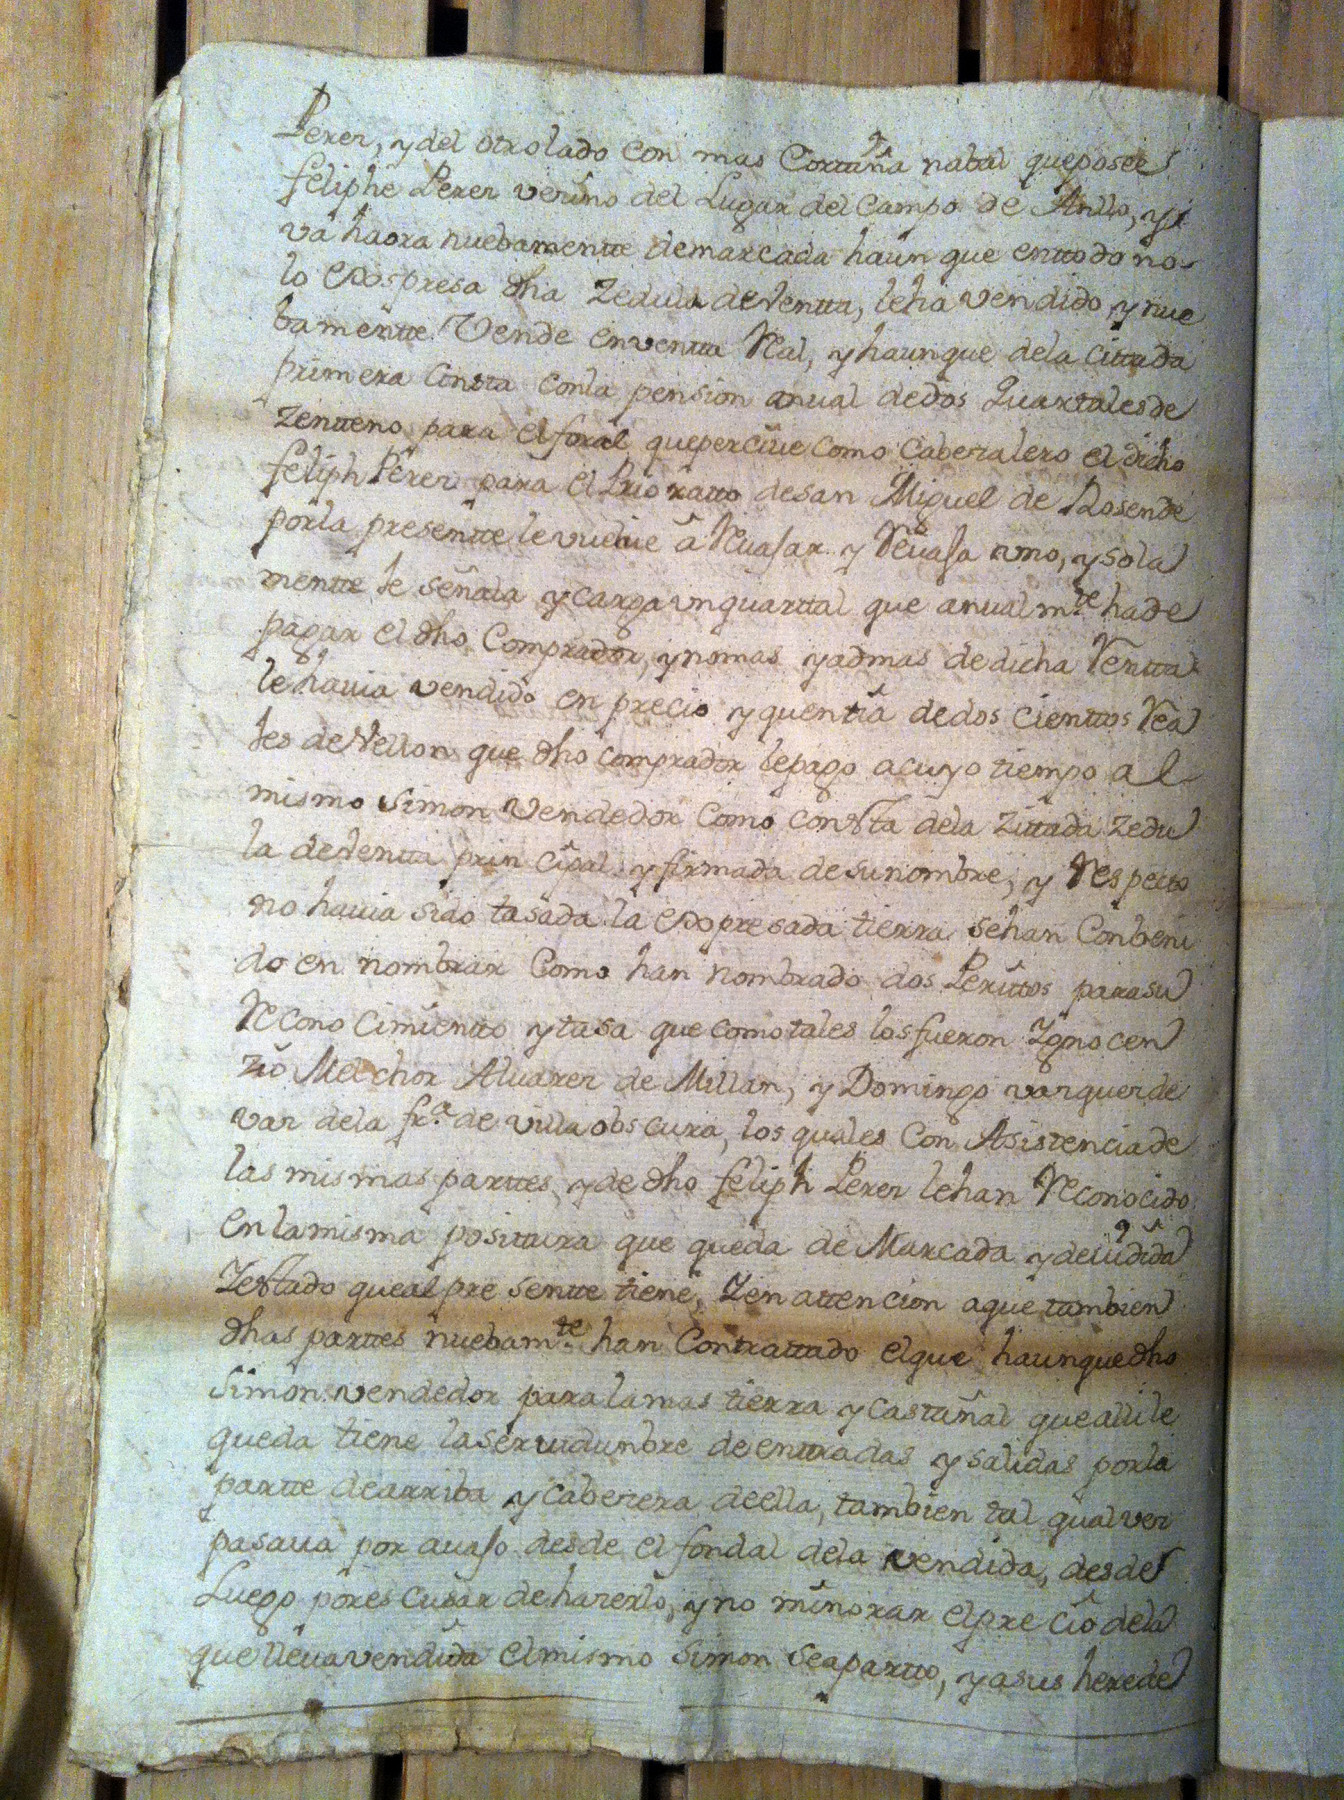 Perez, y del otro lado con mas Cortiña nabal que posee
feliphe Perez vecino del Lugar del Campo de Anllo, y si
va haora nuebamentte demarcada haun que enttodo no
lo expresa dha Zedula de Ventta, le ha vendido, y nue
bamentte Vende en ventta Real, y haunque dela cittada
primera Consta con la pension anual de dos Quartales de
Zentteno para el foral que percive como Cabezalero el dicho
feliph Perez para el Prioratto de san Miguel de Rosende
por la presentte le vuelve â Revajar y Revaja uno, y sola
mentte le señala y carga un quarttal que anualmte. ha de
pagar el dho Comprador, y no mas y ademas de dicha Rentta
le havia vendido en precio y quantia de dos cienttos Rea
les de Vellon que dho comprador le pago a cuyo tiempo al
mismo Simon Vendedor Como consta dela Zittada Zedu
la de Ventta principal y firmada de su nombre, y Respecto
no havia sido tasada la expresada tierra se han Conbeni
do en nombrar Como han nombrado dos Perittos para su
Reconocimientto y tasa que como tales los fueron Ygnocen
zio Melchor Alvarez de Millan, y Domingo vazquez de
var dela fra. de villaobscura, los quales Con Asistencia de
las mismas parttes, y de dho feliph Perez le han Reconocido
en la misma positura que queda de Marcada y devidida
Zestado que al presentte tiene, Y en attencion a que tambien
dhas parttes nuebamte. han Contrattado el que haunque dho
Simon vendedor para la mas tierra y Castañal que alli le
queda tiene la servidumbre de enttradas y salidas por la
partte de arriba y Cabezera de ella, tambien tal qual vez
pasava por avajo desde el fondal dela vendida, desde
Luego por escusar de hazerlo, y no minorar el precio dela
que lleva vendida el mismo Simon se apartto, y a sus herede